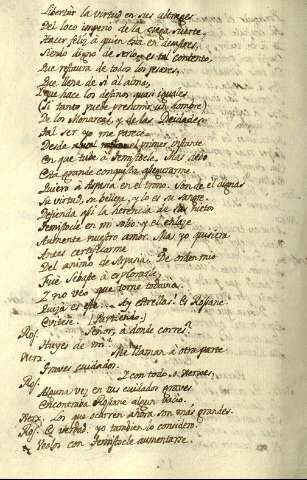 Libertar la virtud en sus ultrages
Del loco imperio de la ciega suerte
Hacer feliz à quien està en
Siendo digno de serlo, es tal contento,
Que restaura de todo los pesares,
Que llena de sì al alma,
Y que hace los destinos quasi iguales,
(Si tanto puede presumir un hombre)
De los Monarcas, y de las Deidades.
Tal ser yo me parece
Desde aquel primer instante
En que tube à Temistocle. Mas debo
Esta grande conquista asegurarme.
Quiero à Aspasia en el trono. Son de èl dignas
Su virtud, su belleza, y lo es su sangre.
Defienda asi la herencia de sus nietos
Temistocle en mi solio: y el enlaze
Aumente nuestro amor. Mas yo quisiera
Antes certificarme
Del animo de Aspasia. De orden mio
Fue Sebaste à explorarle,
Y no veo que torne todavia.
Quizà es Ay estrellas! Es Roxane.
Evitese. (Partiendo.)
Rox. Señor, à donde corres?
Huyes de mi?
Xerx. Me llaman à otra parte
Graves cuidados.
Rox. Y con todo, o Xerxes,
Alguna vez en tus cuidados graves
Encontraba Roxane algun vacio.
Xerx. Los que ocurren ahora son mas grandes.
Rox. Es verdad. yo tambien lo considero.
Veolos con Temistocle aumentarse.